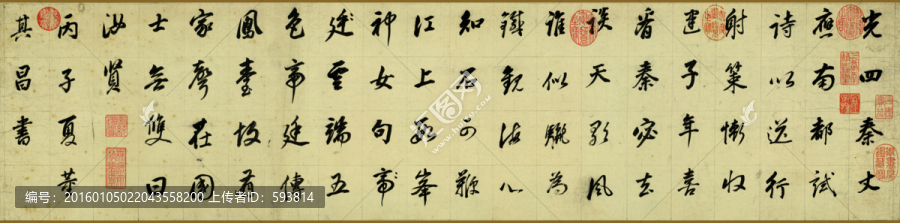 光四秦丈
應南都試
詩以送行
射策懶收
建子年喜
看秦宓去
談天
誰似驪為
鐵網海心
知石可鞭
江上數峯
神女句
廷雲端五
色帝廷傳
鳳臺故有
家聲在國
士無雙曰
汝賢
丙子夏董
其昌書
编号:20160105022043558200 上传者ID:593814